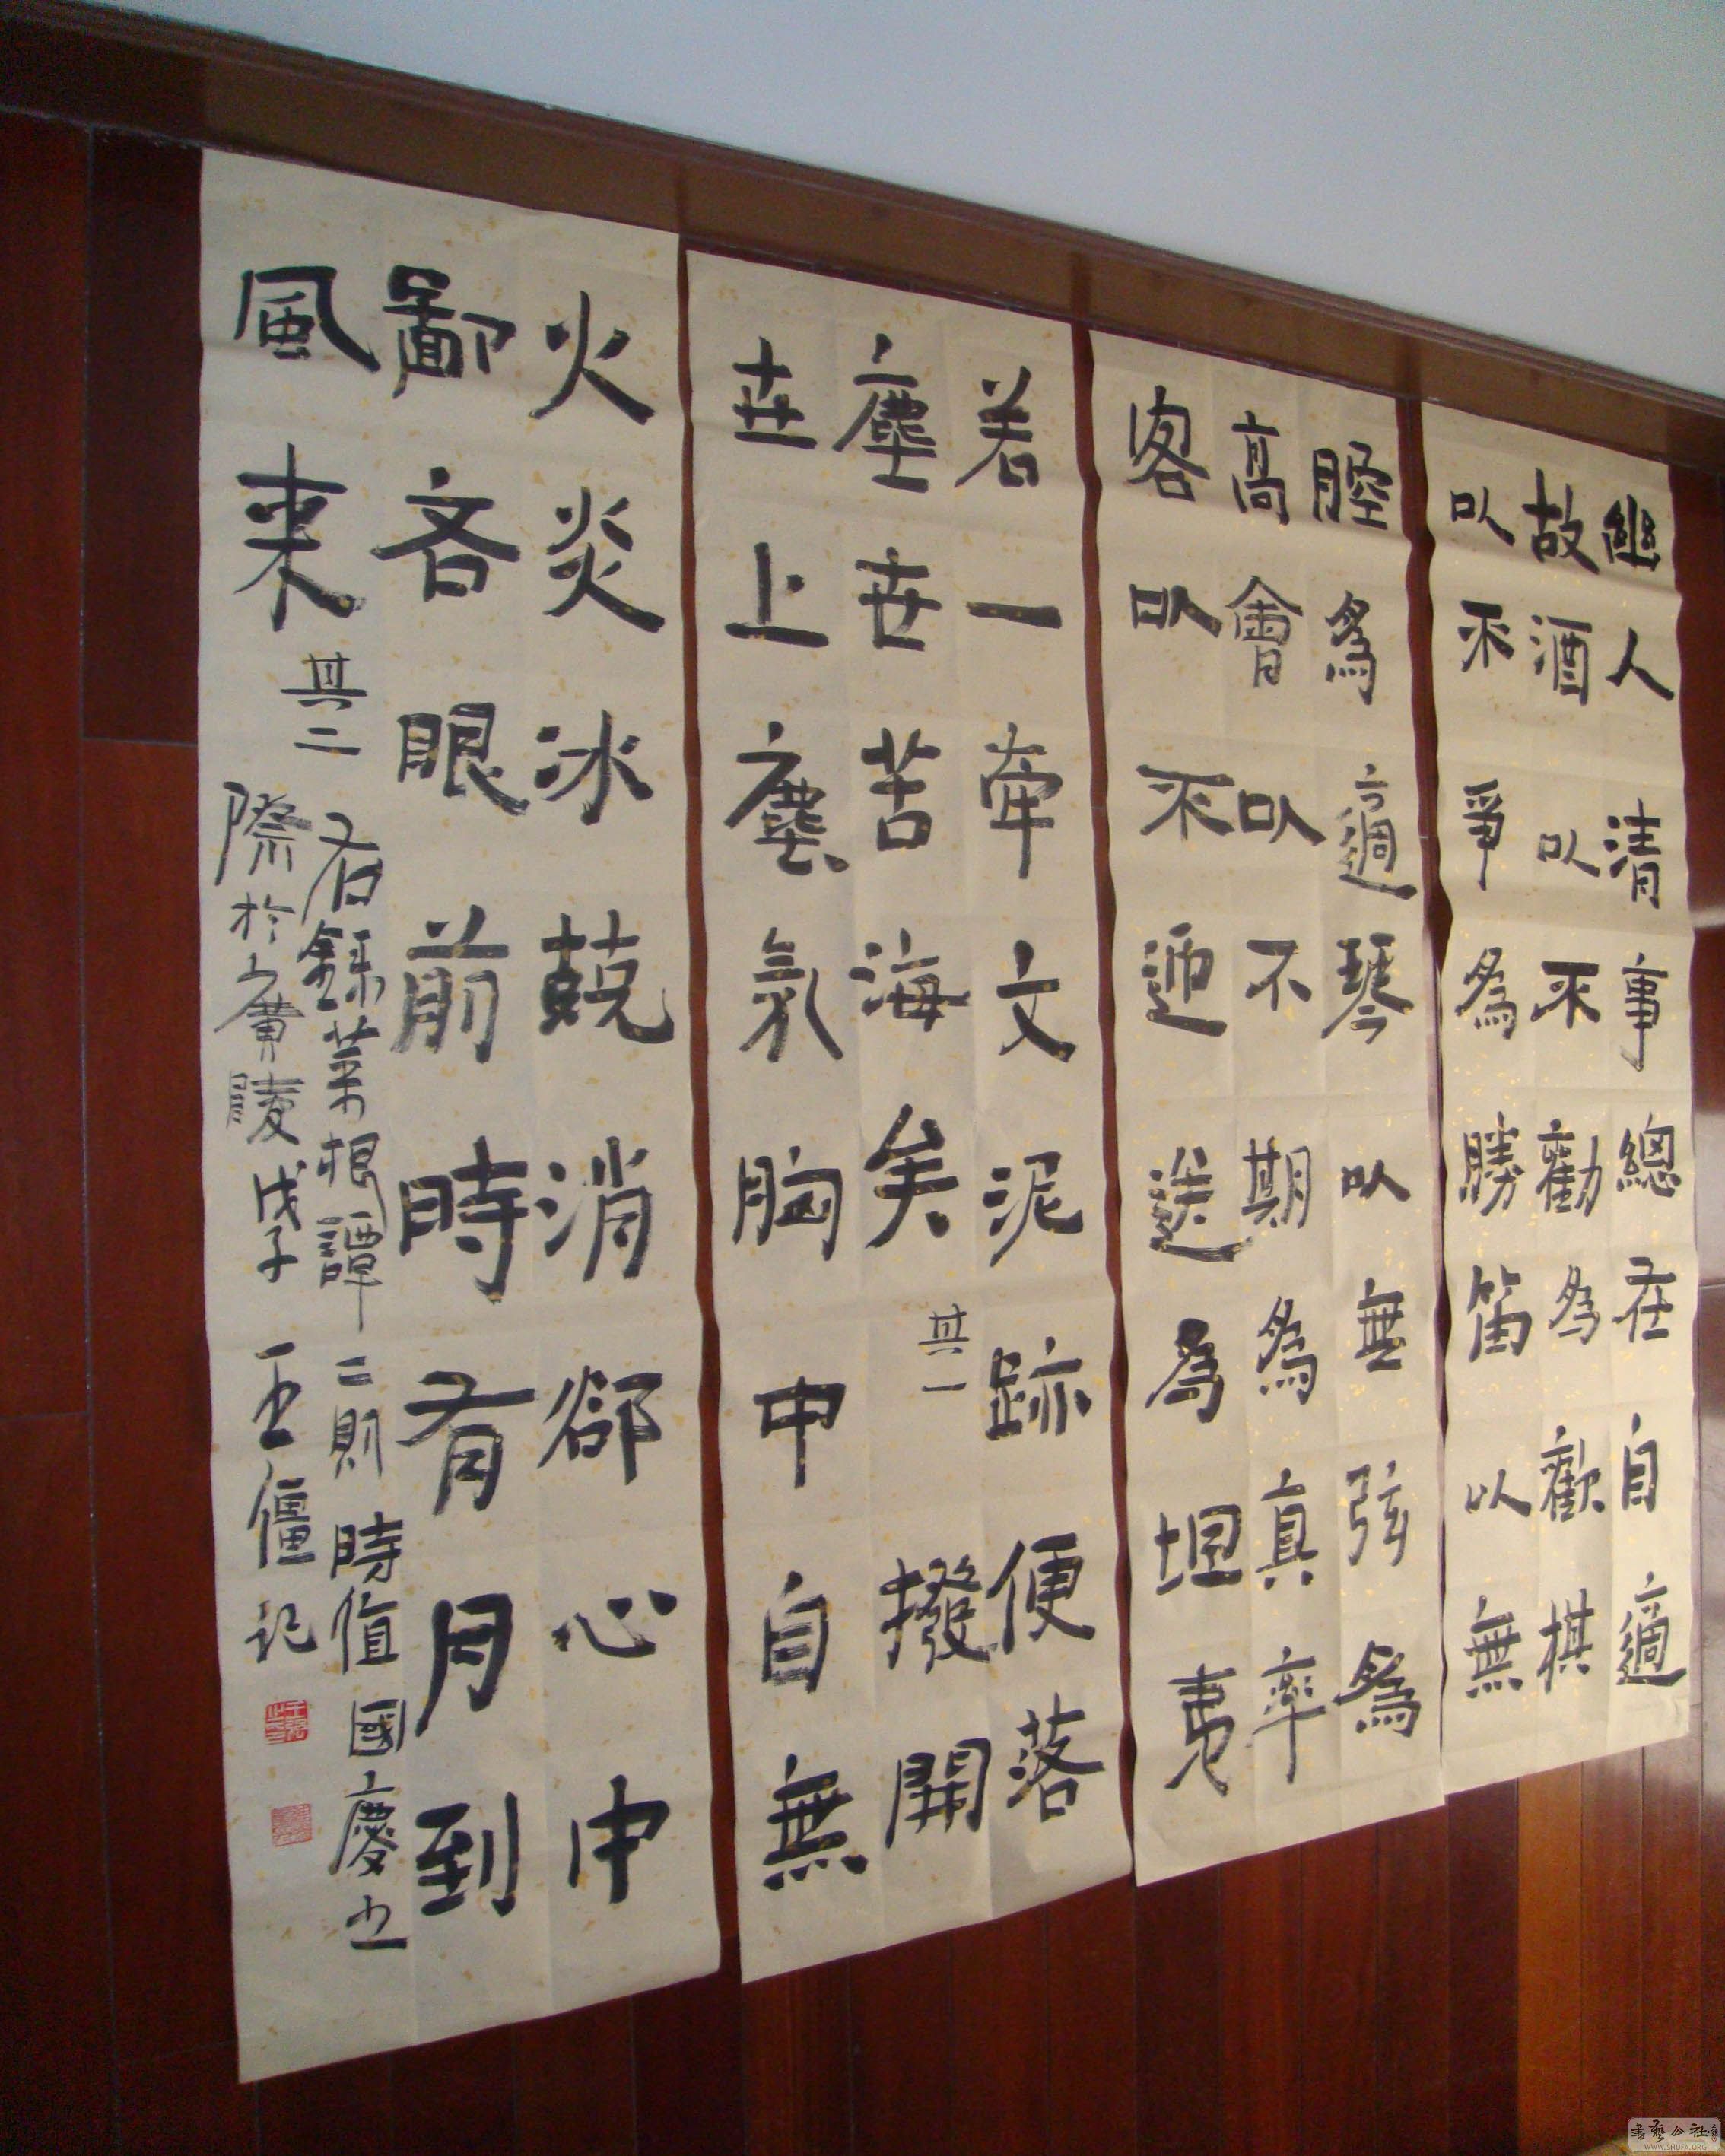 幽人清事總在自適
故酒以不勸為歡棋
以不爭為勝笛以無
腔為適琴以無弦為
高會以不期為真率
客以不迎送為坦夷
若一牽文泥跡便落
塵世苦海矣 其一 撥開
世上塵氛胸中自無
火炎冰兢消郤心中
鄙吝眼前時有月到
風來 其二 右錄菜根譚二則 時值國慶之
際於廣陵戊子 王僵記
書藝公社
WWW.SHUFA.ORG